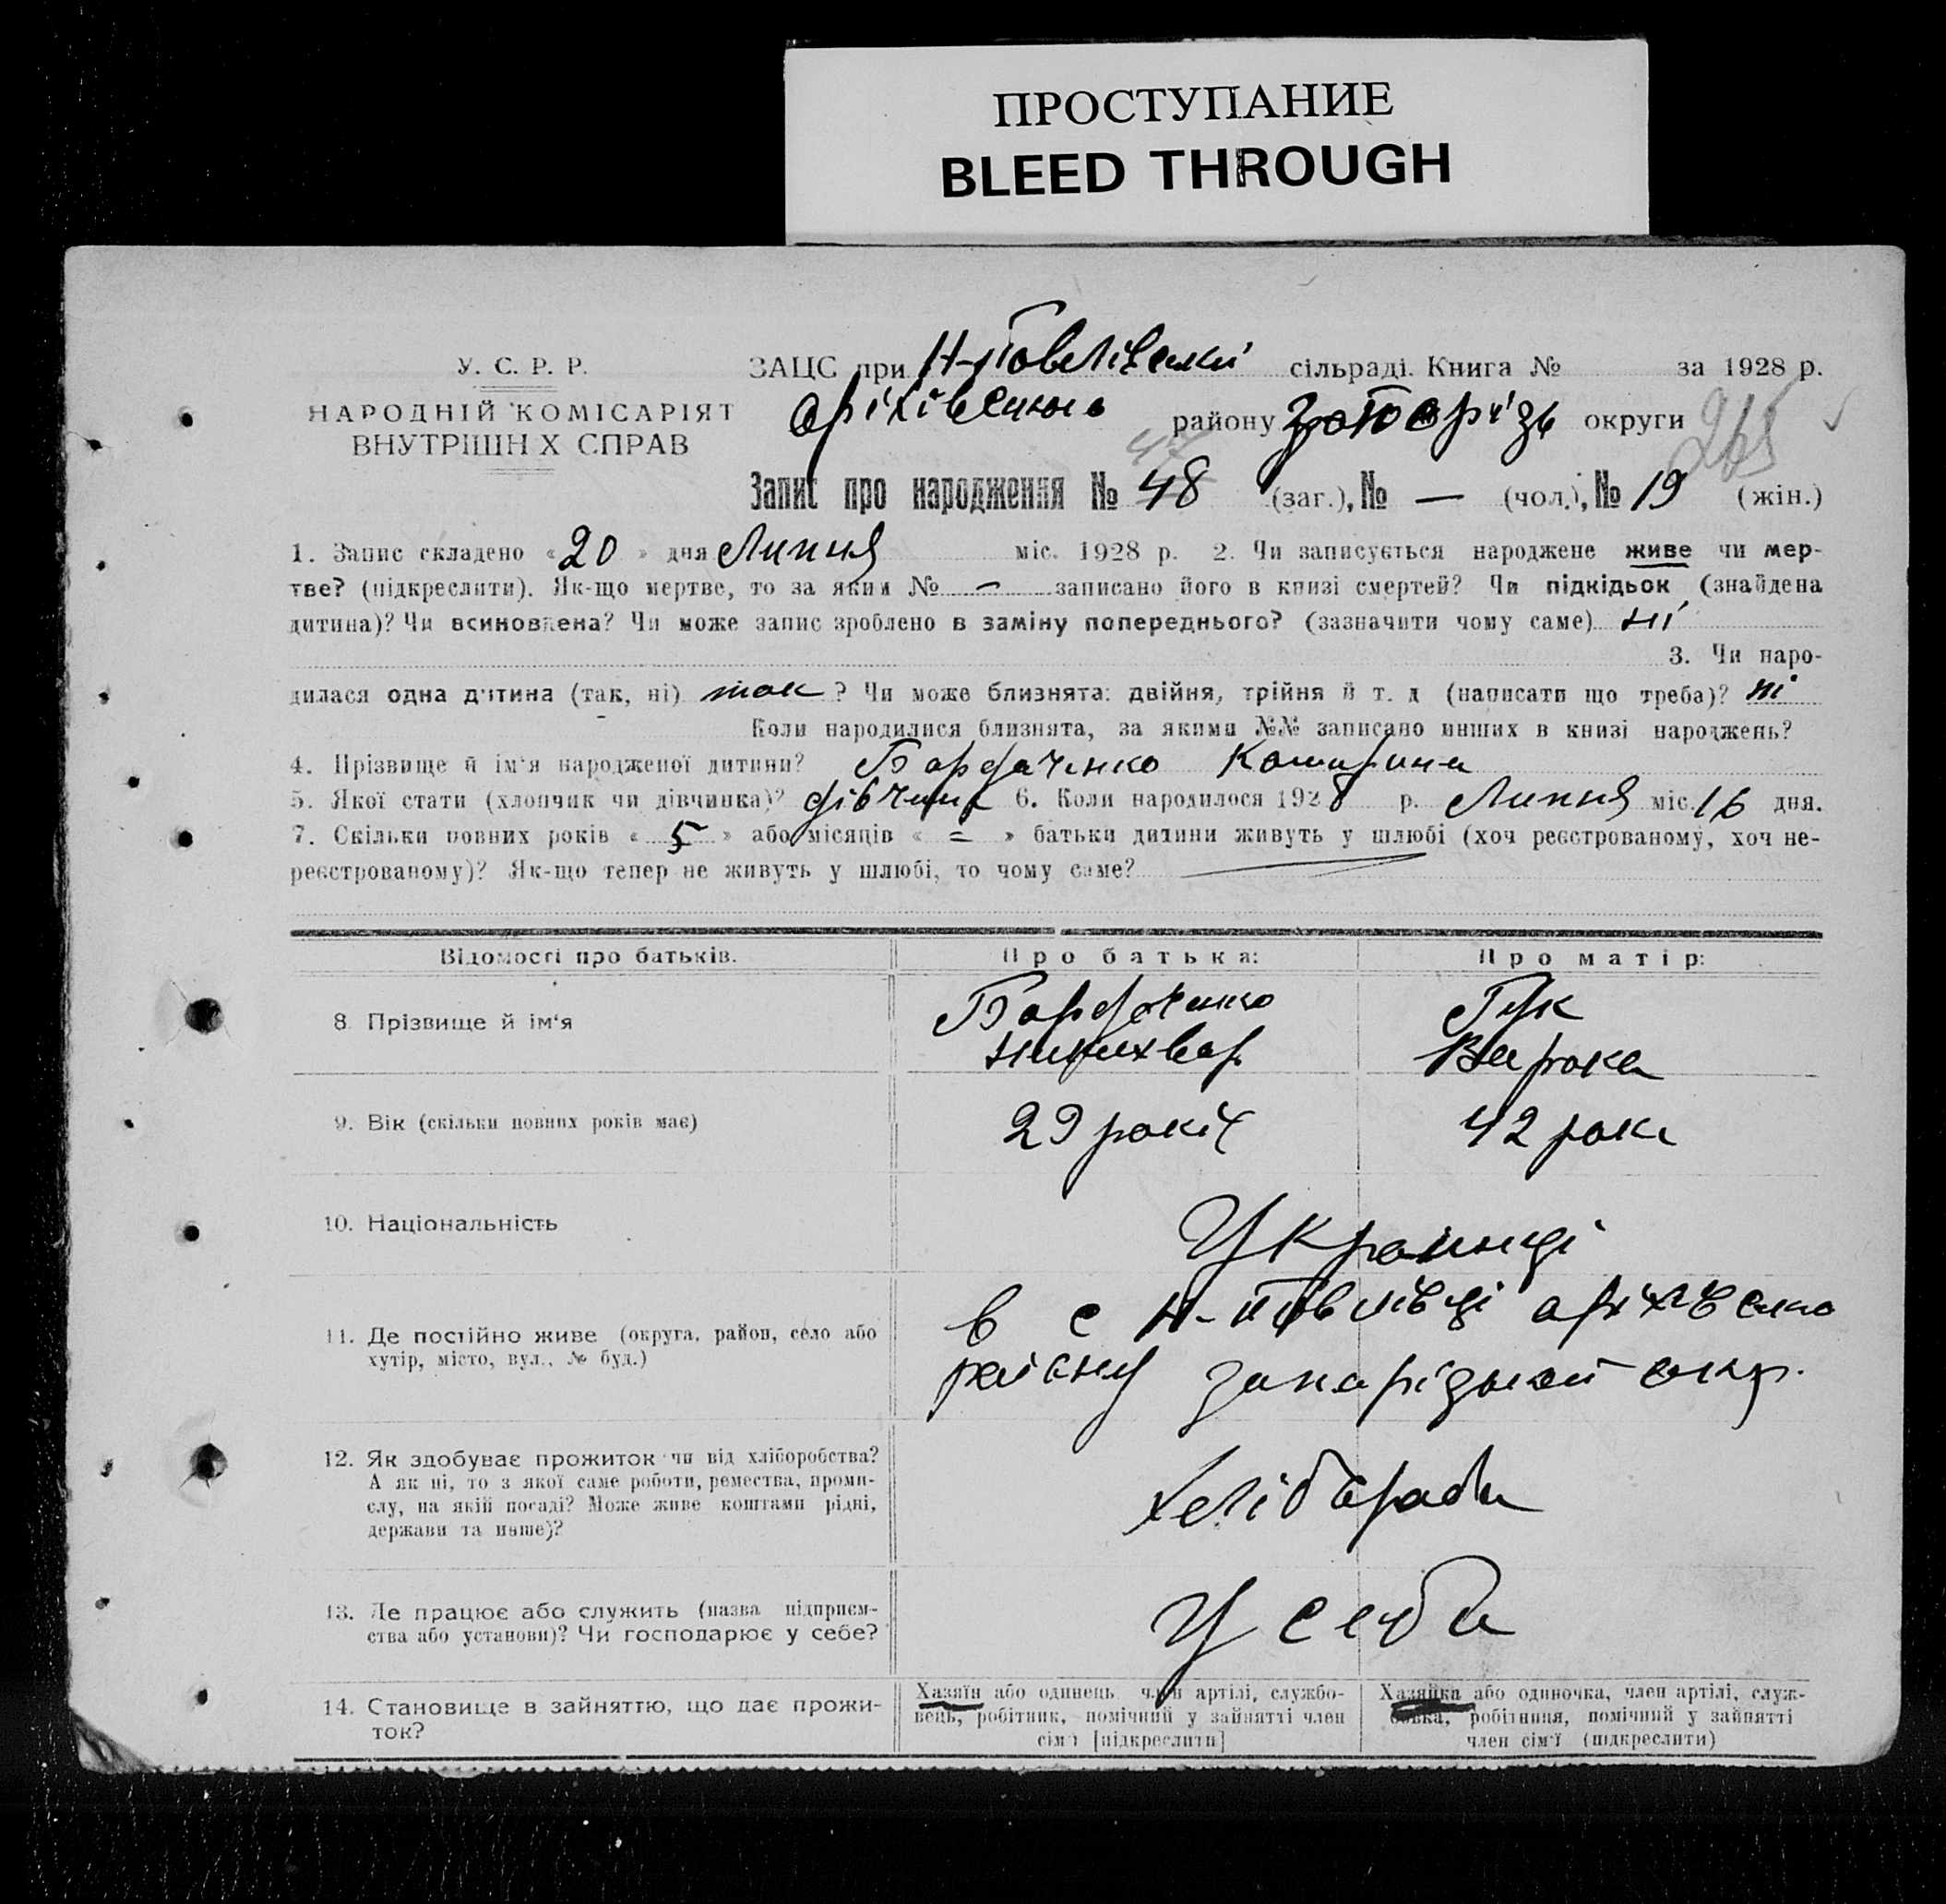 ПРОСТУПАНИЕ
BLEED THROUGH
У. С. Р. Р.
НАРОДНІЙ КОМІСАРІЯТ
ВНУТРІШН Х СПРАВ
ЗАЦС при Н-Повлівській сільраді. Книга № за 1928 р.
Оріхівського району Запорізь округи 265
47
Запис про народження № 48 (заг.), № — (чол.), № 19 (жін.)
1. Запис складено «20» дня Липня міс. 1928 р. 2. Чи записується народжене живе чи мер-
тве? (підкреслити). Як-що мертве, то за яким № — записано його в книзі смертей? Чи підкідьок (знайдена
дитина)? Чи всиновлена? Чи може запис зроблено в заміну попереднього? (зазначити чому саме) ні
3. Чи наро-
дилася одна дитина (так, ні) так? Чи може близнята: двійня, трійня й т. д (написати що треба)? ні
Коли народилися близнята, за якими №№ записано инших в книзі народжень?
4. Прізвище й ім'я народженої дитини? Бардаченко Катирина
5. Якої стати (хлопчик чи дівчинка)? дівчина 6. Коли народилося 1928 р. Липня міс. 16 дня.
7. Скільки повних років «5» або місяців «=» батьки дитини живуть у шлюбі (хоч реєстрованому, хоч не-
реєстрованому)? Як-що тепер не живуть у шлюбі, то чому саме?
Відомості про батьків. Про батька: Про матір:
8. Прізвище й ім'я Бардаченко Гук
Варока
9. Вік (скільки повних років має) 29 років 42 роки
10. Національність Українці
11. Де постійно живе (округа, район, село або
хутір, місто, вул., № буд.)
в с Н-Повлівці оріхівсько
району запорізькой окр.
12. Як здобуває прожиток чи від хліборобства?
А як ні, то з якої саме роботи, ремества, проми-
слу, на якій посаді? Може живе коштами рідні,
держави та инше)?
хлібароби
13. Де працює або служить (назва підприєм-
ства або установи)? Чи господарює у себе?
У себи
14. Становище в зайняттю, що дає прожи-
ток?
Хазяїн або одинець, член артілі, службо-
вець, робітник, помічний у зайнятті член
сім'ї [підкреслити]
Хазяйка або одиночка, член артілі, служ-
бовка, робітниця, помічний у зайнятті
член сім'ї (підкреслити)